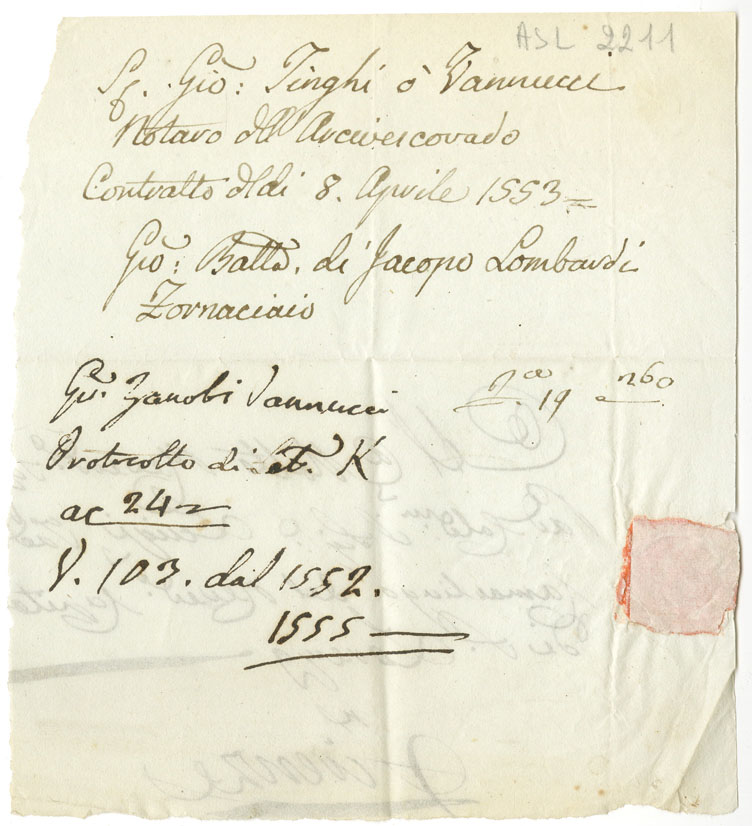 ASL 2211
Sr. Giō: Tinghi ò Vannucci
Notaro dell Arcivescovado
Contratto d'di 8. Aprile 1553=
Giō: Batta. di Jacopo Lombardi
Fornaciaio
Gio. Zanobi Vannucci
19 n 60
Protocollo di Let. K
ac 24
V. 103. dal 1552.
1555
Firenze